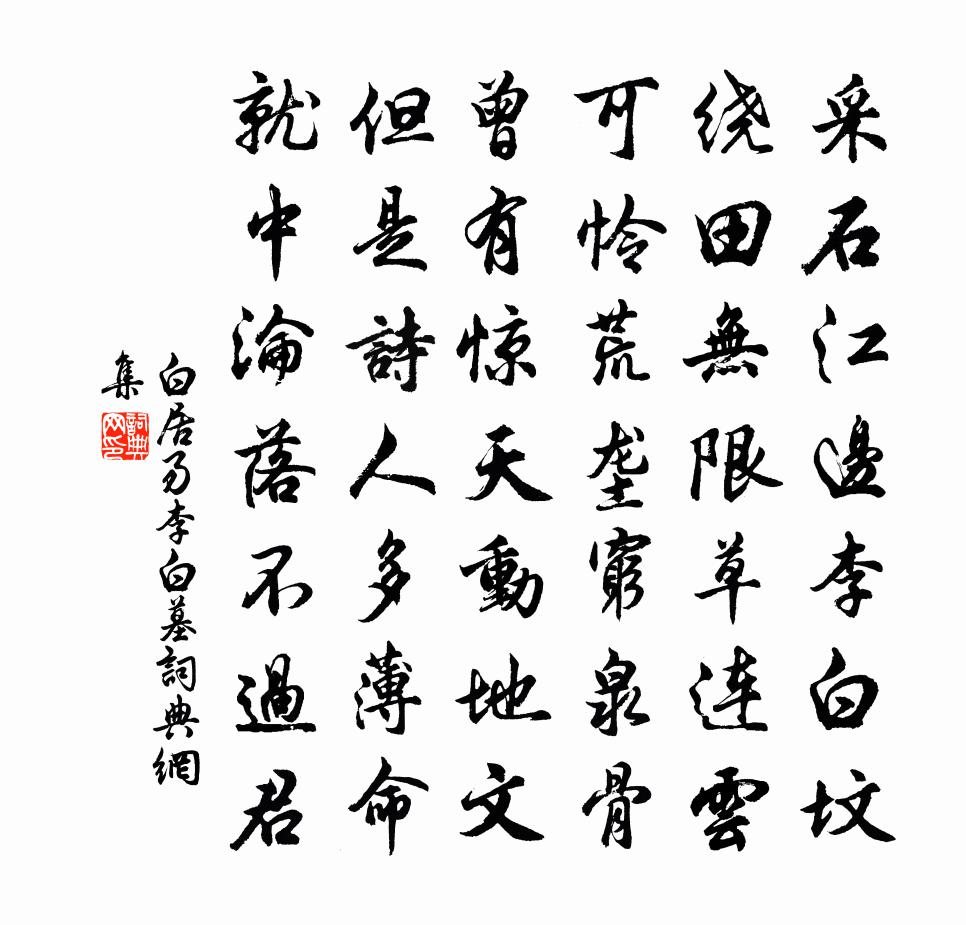 采石江邊李白坟
绕田無限草連雲
可怜荒垄窮泉骨
曾有惊天動地文
但是詩人多薄命
就中淪落不過君
白居易李白墓詞典網
集
詞典
网印